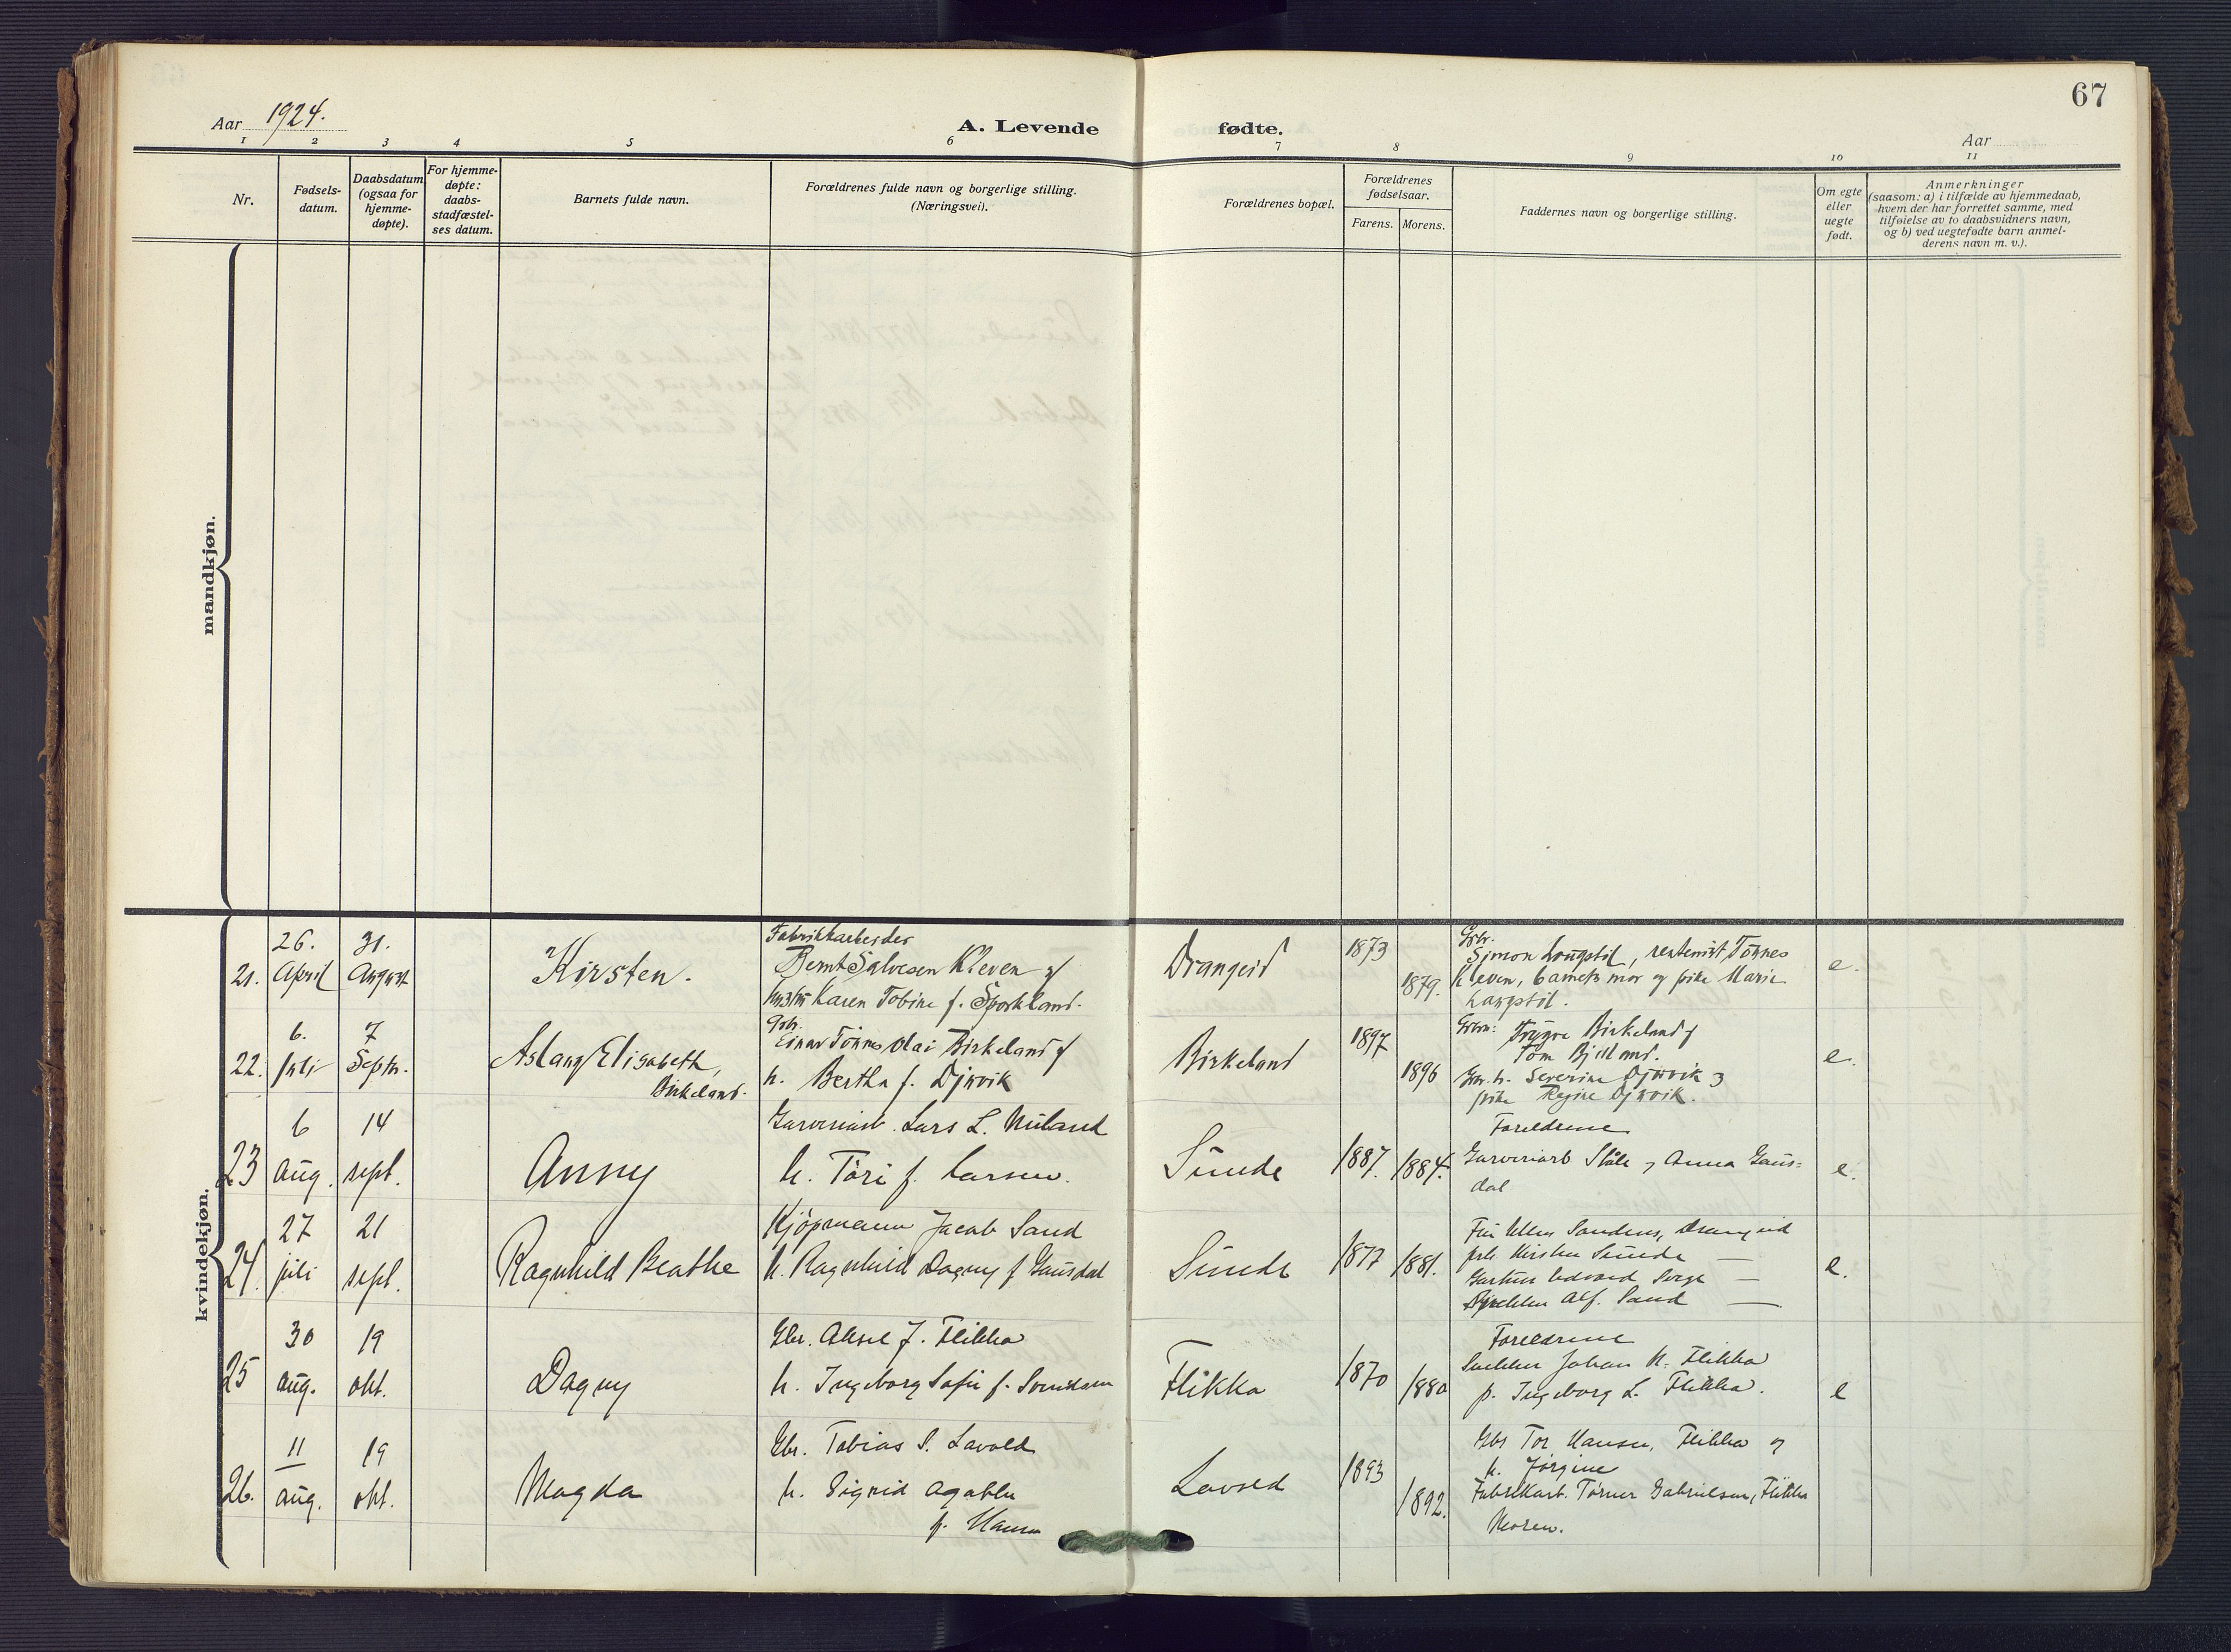 67
Aar 1924.
A. Levende fødte.
Aar
1 2 3 4 5 6 7 8 9 10 11
Nr.
Fødsels-
datum.
Daabsdatum
(ogsaa for
hjemme-
døpte).
For hjemme-
døpte:
daabs-
stadfæstel-
ses datum.
Barnets fulde navn.
Forældrenes fulde navn og borgerlige stilling.
(Næringsvei).
Forældrenes bopæl.
Forældrenes
fødselsaar.
Farens. Morens.
Faddernes navn og borgerlige stilling.
Om egte
eller
uegte
født.
Anmerkninger
(saasom: a) i tilfælde av hjemmedaab,
hvem der har forrettet samme, med
tilføielse av to daabsvidners navn,
og b) ved uegtefødte barn anmel-
derens navn m. v.).
mandkjøn.
kvindekjøn.
21.
26.
April
31.
August
Kirsten.
Fabrikkarbeider
Bernt Salvesen Kleven og
hustru Karen Tobine f. Sporkland.
Drangeid
1873
1879.
Gbr.
Simon Langstøl, rentenist Tønnes
Kleven, barnets mor og pike Marie
Langstøl.
e.
22.
6.
juli
7
Septr.
Aslaug Elisabeth,
Birkeland.
Gbr.
Einar Tønnes Olai Birkeland og
h. Bertha f. Djuvik
Birkeland
1897
1896
Trygve Birkeland og
Tom Bjelland.
Gbr. h. Severine Djuvik
pike Regine Djuvik.
e.
23
6
aug.
14
sept.
Anny
Garveriarb. Lars L. Nuland
h. Tori f. Larsen.
Sunde
1887. 1884.
Foreldrene
Garveriarb Ståle og Anna Gaus=
dal
e.
24.
27
juli
21
sept.
Ragnhild Beathe
Kjøpmann Jacob Sand
h. Ragnhild Dagny f Gausdal
Sunde
1877 1881.
Fru Ellen Sandens, Drangeid
frk. Kirsten Sunde —
Gartner Edvard —
Alf. Sand —
e.
25
30
aug.
19
okt.
Dagny
Gbr. Aksel J. Flikka
h. Ingeborg Sofie f. Svendsen
Flikka
1870 1880
Foreldrene
Snekker Johan N. Flikka
p. Ingeborg L. Flikka.
e
26.
11
aug.
19
okt.
Magda
Gbr. Tobias S. Lavold
h. Sigrid Agathe
f. Hansen
Lavold
1893
1892.
Gbr Tor Hansen, Flikka og
h. Jørgine
Fabrikkarb. Tørner Gabrielsen, Flikka
Moren.